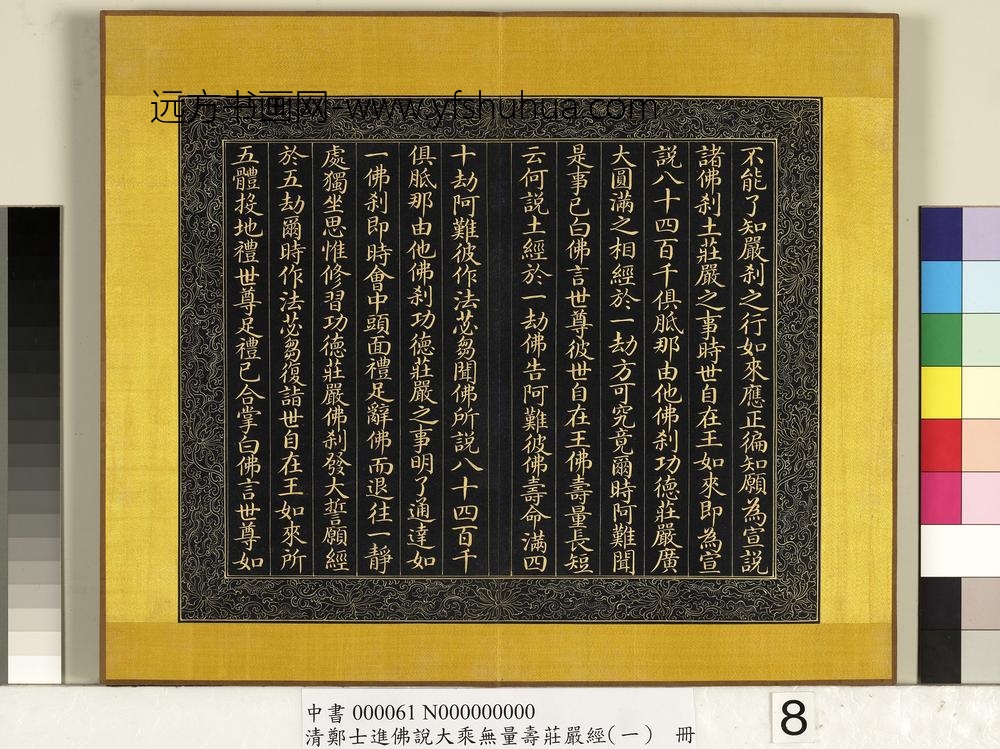 远方书画网-www.yfshuhua.com
不能了知嚴刹之行如來應正徧知願為宣説
諸佛刹土莊嚴之事時世自在王如來即為宣
説八十四百千俱胝那由他佛刹功德莊嚴廣
大圓滿之相經於一劫方可究竟爾時阿難聞
是事已白佛言世尊彼世自在王佛壽量長短
云何説土經於一劫佛告阿難彼佛壽命滿四
十劫阿難彼作法苾芻聞佛所説八十四百千
俱胝那由他佛刹功德莊嚴之事明了通達如
一佛刹即時會中頭面禮足辭佛而退往一靜
處獨坐思惟修習功德莊嚴佛刹發大誓願經
於五劫爾時作法苾芻復詣世自在王如來所
五體投地禮世尊足禮已合掌白佛言世尊如
中書 000061 N000000000
清鄭士進佛說大乘無量壽莊嚴經(一) 冊
8